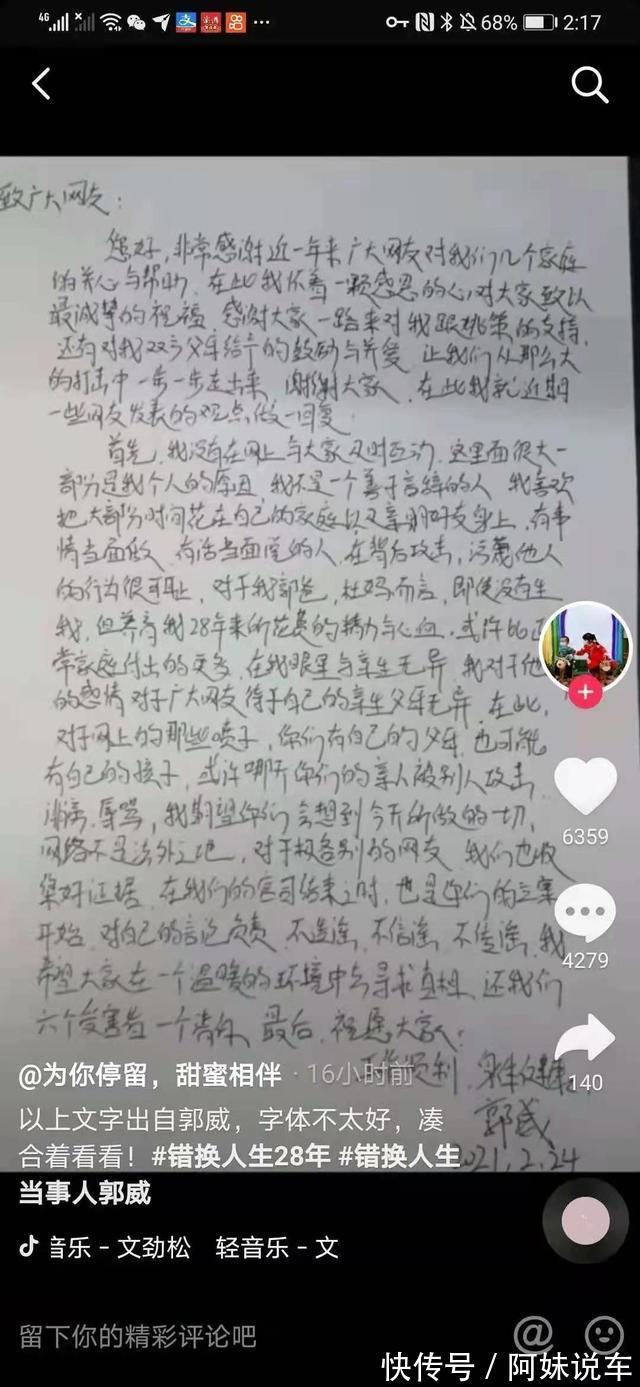 4G 68% 2:17
致广大网友：
您好，非常感谢近一年来广大网友对我们几个家庭
的关心与帮助，在此我怀着一颗感恩的心，对大家致以
最诚挚的祝福，感谢大家一路来对我跟姚策的支持，
还有对我双方父母给予的鼓励与关爱，让我们从那么大
的打击中一步一步走出来，谢谢大家，在此我就近期
一些网友发表的观点做一回复
首先，我没有在网上与大家及时互动，这里面很大一
部分是我个人的原因，我不是一个善于言辞的人，我喜欢
把大部分时间花在自己的家庭以及亲朋好友身上，有事
情当面做，有话当面说的人，在背后攻击，污蔑他人
的行为很可耻，对于我郭爸，杜妈而言，即使没有生
我，但养育我28年来所花费的精力与心血，或许比正
常家庭付出的更多，在我眼里与亲生无异，我对于他
的感情对于广大网友待于自己的亲生父母无异，在此，
对于网上的那些喷子，你们有自己的父母，也可能
有自己的孩子，或许哪天你们的亲人被别人攻击
辱骂，我期望你们会想到今天所做的一切，
网络不是法外之地，对于极个别的网友，我们也收
集好证据，在我们的官司结束之时，也是你们的立案
开始，对自己的言论负责，不造谣，不信谣，不传谣，我
希望大家在一个温暖的环境中去寻求真相，还我们
六个受害者一个清白，最后，祝愿大家：
身体健康
郭威
2021.2.24
6359
4279
140
@为你停留，甜蜜相伴 · 16小时前
以上文字出自郭威，字体不太好，凑
合着看看！#错换人生28年 #错换人生
当事人郭威
音乐 - 文劲松 轻音乐 - 文
留下你的精彩评论吧
快传号 / 阿妹说车